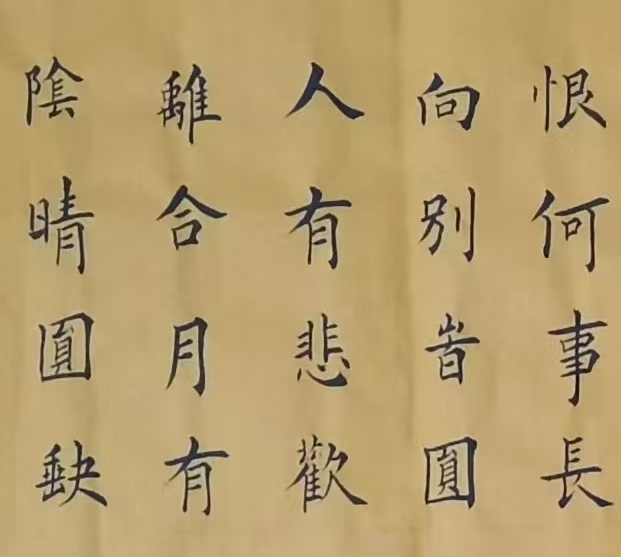 恨何事長
向別旹圓
人有悲歡
離合月有
陰晴圓缺